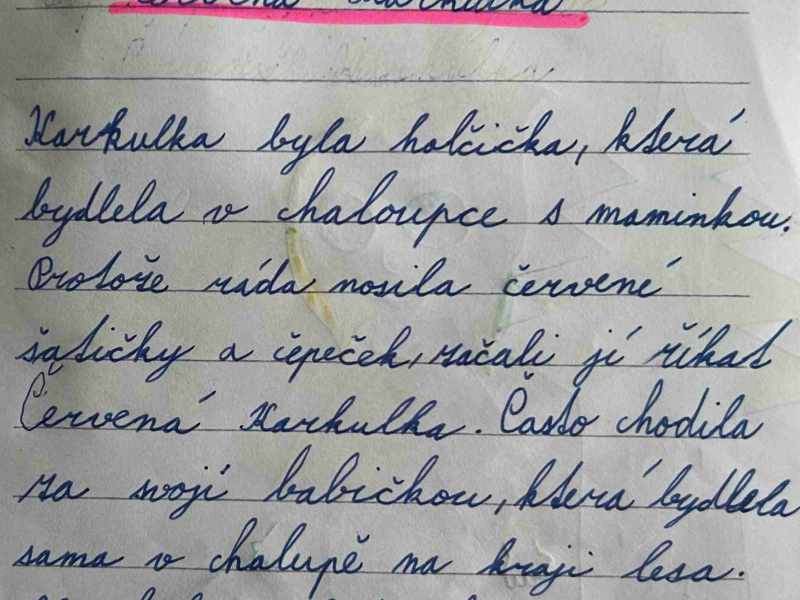 Karkulka byla holčička, která
bydlela v chaloupce s maminkou.
Protože ráda nosila červené
šatičky a čepeček, začali jí říkat
Červená Karkulka. Často chodila
za svojí babičkou, která bydlela
sama v chalupě na kraji lesa.